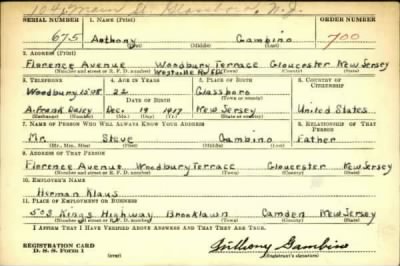 SERIAL NUMBER 1. NAME (Print) ORDER NUMBER
675 Anthony Gambino 700
(First) (Middle) (Last)
2. ADDRESS (Print)
Florence Avenue Woodbury Terrace Gloucester New Jersey
Westville
(Number and street or R. F. D. number) (Town) (County) (State)
3. TELEPHONE 4. AGE IN YEARS 5. PLACE OF BIRTH 6. COUNTRY OF CITIZENSHIP
Woodbury 1508 22 Glassboro
DATE OF BIRTH (Town or county)
Dec. 19 1917 New Jersey United States
(Exchange) (Number) (Mo.) (Day) (Yr.) (State or country)
7. NAME OF PERSON WHO WILL ALWAYS KNOW YOUR ADDRESS 8. RELATIONSHIP OF THAT PERSON
Mr. Steve Gambino Father
(Mr., Mrs., Miss) (First) (Middle) (Last)
9. ADDRESS OF THAT PERSON
Florence Avenue Woodbury Terrace Gloucester New Jersey
(Number and street or R. F. D. number) (Town) (County) (State)
10. EMPLOYER'S NAME
Herman Klaus
11. PLACE OF EMPLOYMENT OR BUSINESS
503 Kings Highway Brooklawn Camden New Jersey
(Number and street or R. F. D. number) (Town) (County) (State)
I AFFIRM THAT I HAVE VERIFIED ABOVE ANSWERS AND THAT THEY ARE TRUE.
REGISTRATION CARD Anthony Gambino
D. S. S. Form 1 (over) (Registrant's signature)